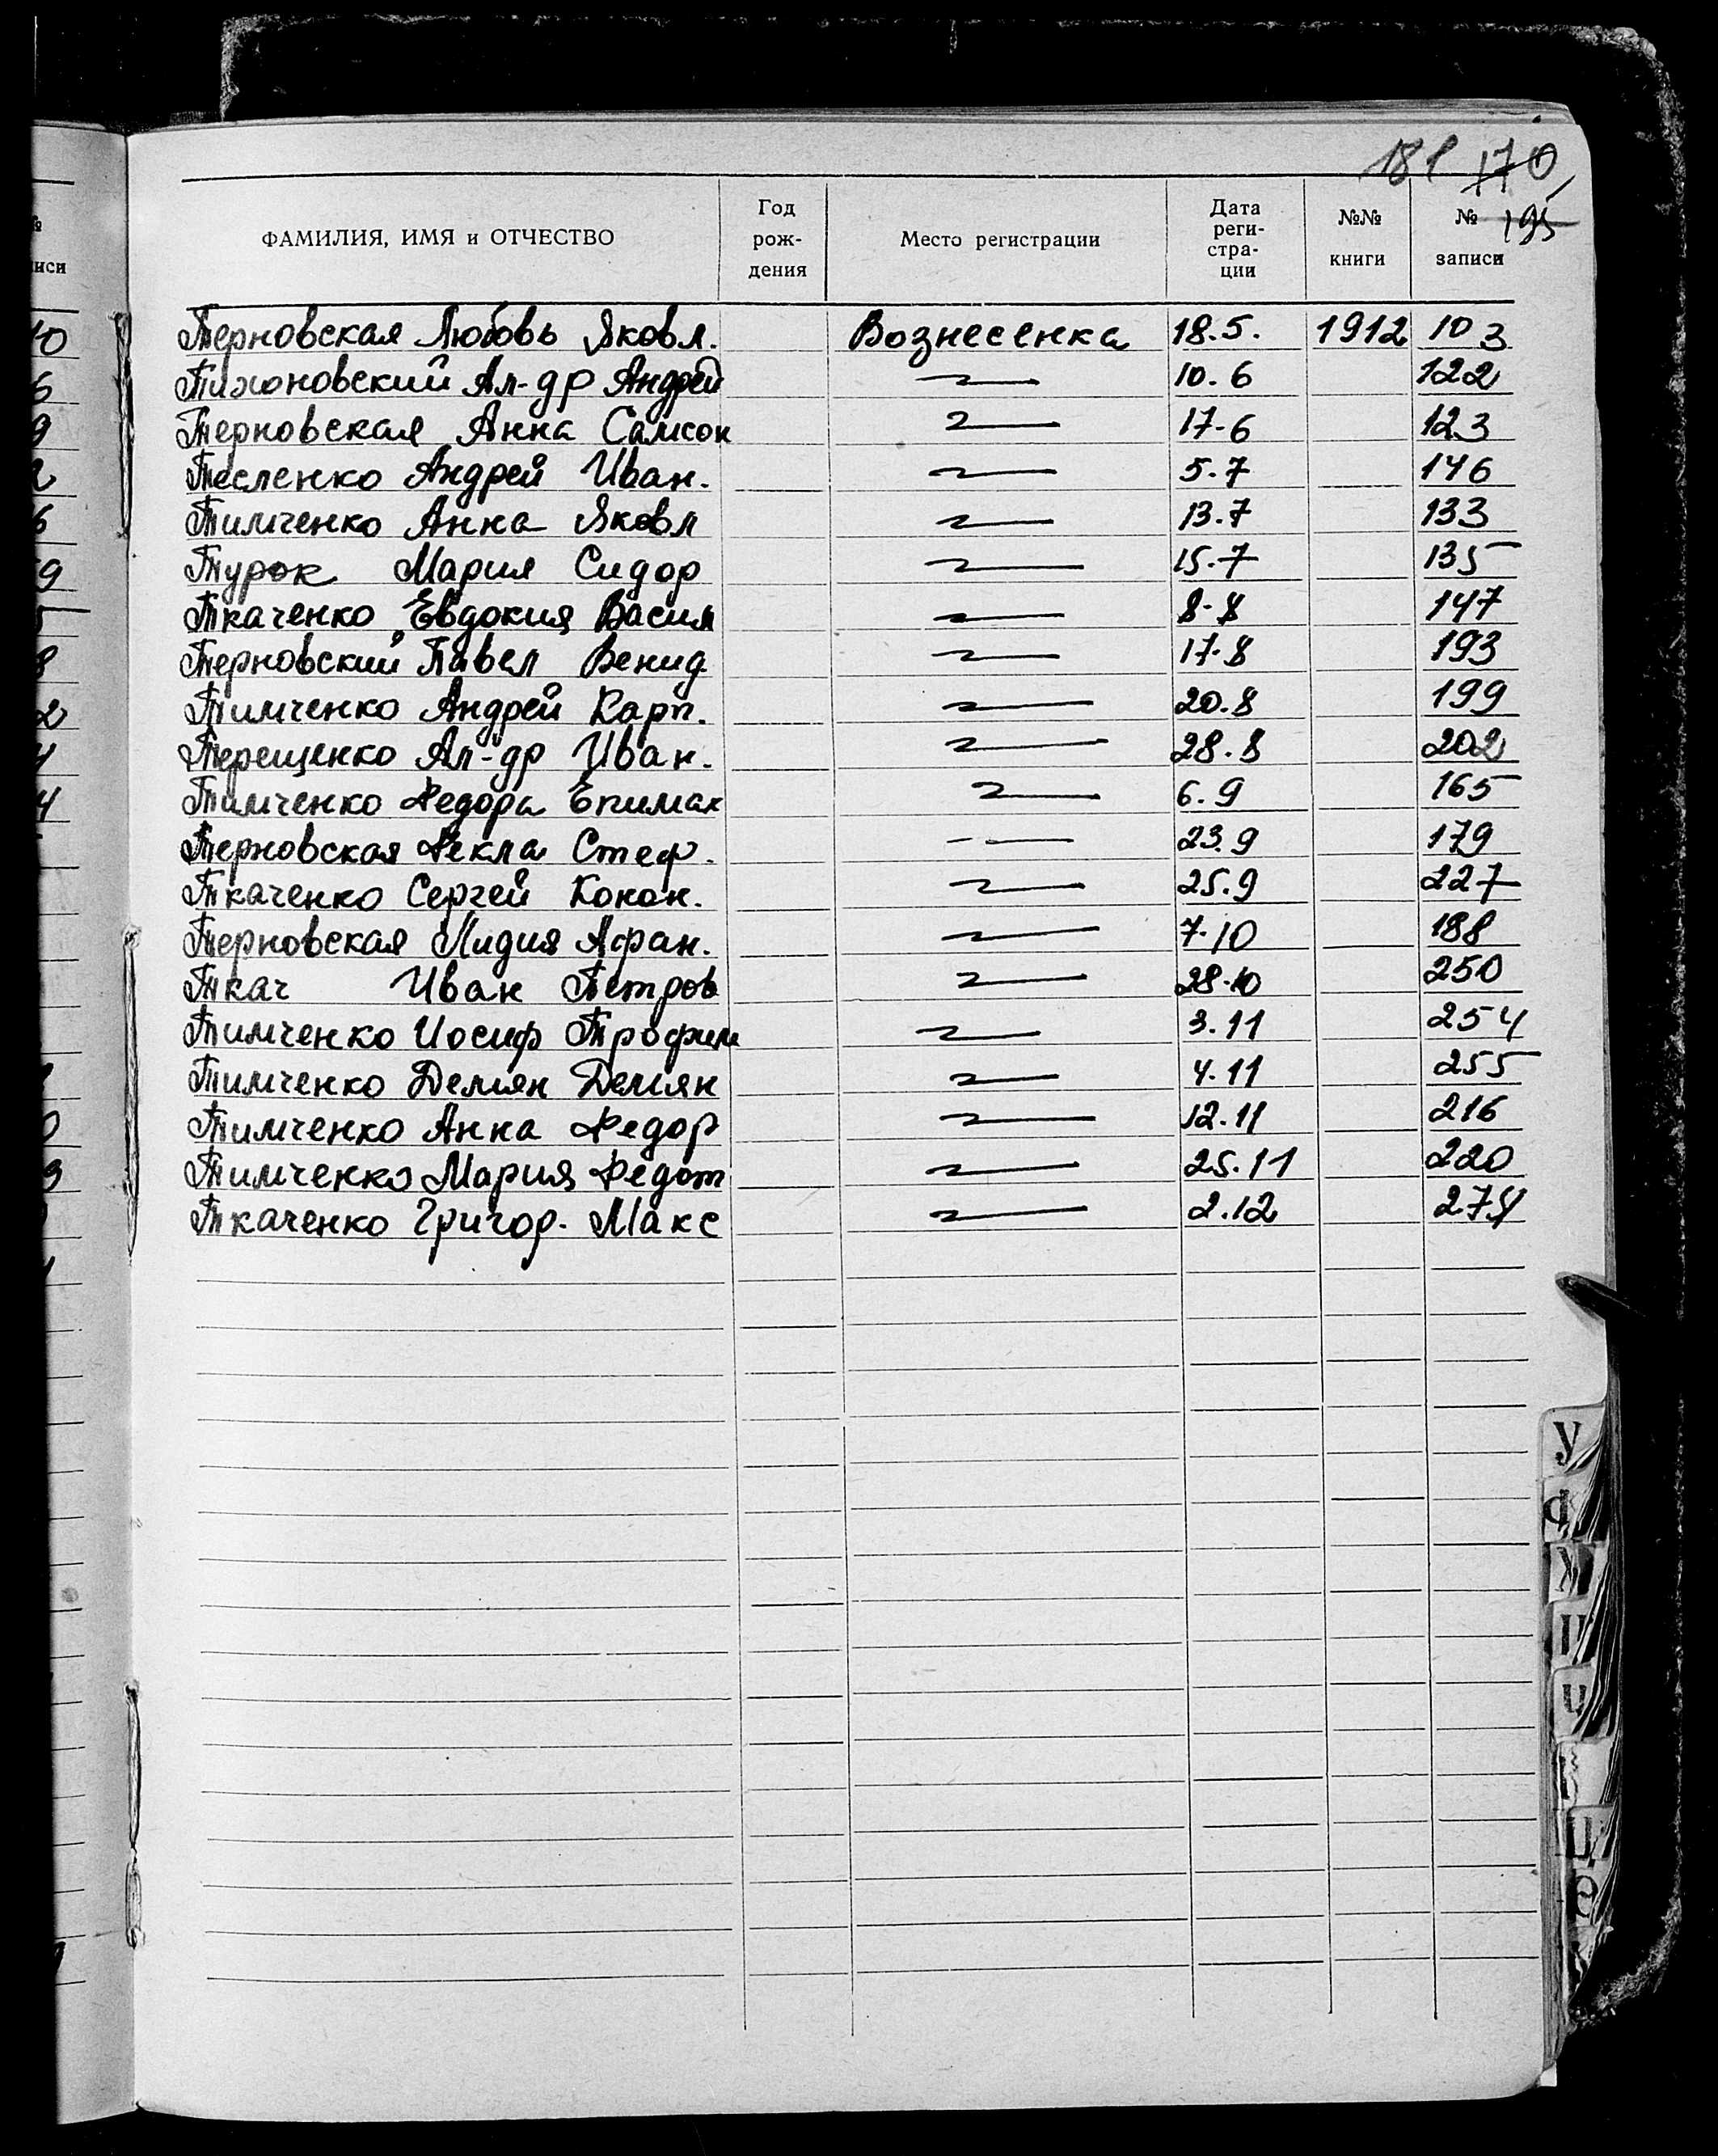 181 170
195
ФАМИЛИЯ, ИМЯ и ОТЧЕСТВО Год рож- дения Место регистрации Дата реги- стра- ции №№ книги № записи
Терновская Любовь Яковл. Вознесенка 18.5. 1912 103
Тихоновский Ал-др Андрей 10.6 122
Терновская Анна Самсон 17-6 123
Тесленко Андрей Иван. 5.7 146
Тимченко Анна Яковл 13.7 133
Турок Мария Сидор 15.7 135
Ткаченко Евдокия Васил 8-8 147
Терновский Павел Венид 17.8 193
Тимченко Андрей Карп. 20.8 199
Терещенко Ал-др Иван. 28.8 202
Тимченко Федора Епимах 6.9 165
Терновская Фекла Стеф. 23.9 179
Ткаченко Сергей Конон. 25.9 227
Терновская Лидия Афан. 7.10 188
Ткач Иван Петров 28.10 250
Тимченко Иосиф Трофим 3.11 254
Тимченко Демян Демян 4.11 255
Тимченко Анна Федор 12.11 216
Тимченко Мария Федот 25.11 220
Ткаченко Григор. Макс 2.12 274
У